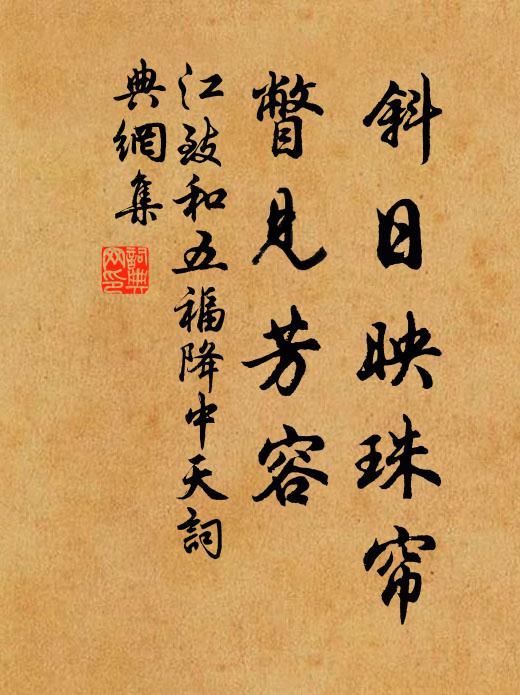 斜日映珠帘
瞥見芳容
江致和五福降中天詞
典網集
詞典
网印